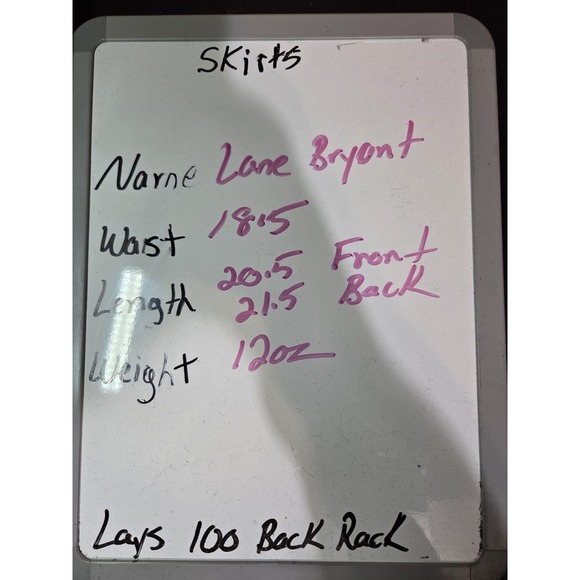 Skirts
Name Lane Bryant
Waist 18.5
Length 20.5 Front
21.5 Back
Weight 12oz
Lays 100 Back Rack